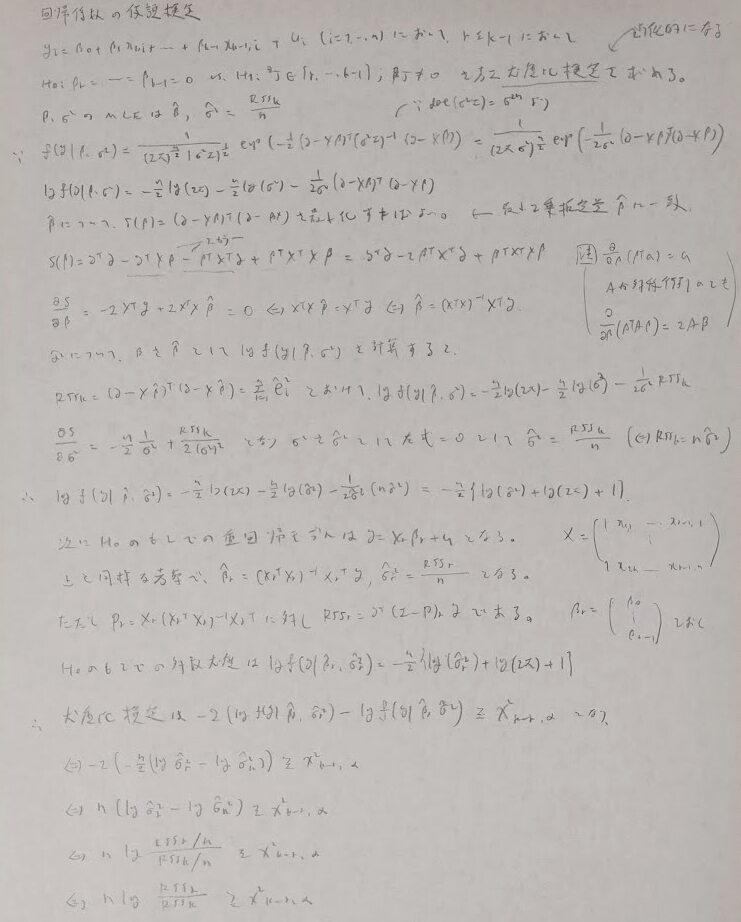 回帰係数の仮説検定
yi = β0 + β1 x1,i + … + βk-1 xk-1,i + ui (i=1,…,n) において, r≦k-1 において
漸化的になる
H0: βr = … = βk-1 = 0 vs. H1: ∃j∈[r,…,k-1] ; βj≠0 尤度比検定を求める。
β, σ² の MLE は β̂, σ̂² = RSSk/n
∵ det(σ²I) = σ²ⁿ
∵ f(y|β,σ²) = 1/((2π)^{n/2} |σ²I|^{1/2}) exp(-1/2 (y-Xβ)ᵀ(σ²I)⁻¹(y-Xβ)) = 1/(2πσ²)^{n/2} exp(-1/2σ² (y-Xβ)ᵀ(y-Xβ))
log f(y|β,σ²) = -n/2 log(2π) - n/2 log(σ²) - 1/2σ² (y-Xβ)ᵀ(y-Xβ)
βについて, S(β) = (y-Xβ)ᵀ(y-Xβ) を最小化すればよい。 ← 最小2乗推定量 β̂ に一致.
S(β) = yᵀy - yᵀXβ - βᵀXᵀy + βᵀXᵀXβ = yᵀy - 2βᵀXᵀy + βᵀXᵀXβ
注 ∂/∂β (βᵀa) = a
Aが対称行列のとき
∂/∂β (βᵀAβ) = 2Aβ
∂S/∂β = -2Xᵀy + 2XᵀXβ̂ = 0 ⇔ XᵀXβ̂ = Xᵀy ⇔ β̂ = (XᵀX)⁻¹Xᵀy.
σ²について, βをβ̂として log f(y|β̂,σ²) を計算すると,
RSSk = (y-Xβ̂)ᵀ(y-Xβ̂) = Σ êi² とおけて, log f(y|β̂,σ²) = -n/2 log(2π) - n/2 log(σ²) - 1/2σ² RSSk
∂S/∂σ² = -n/2 1/σ² + RSSk/2(σ²)² となり σ²をσ̂²として 左式=0として σ̂² = RSSk/n (⇔ RSSk = nσ̂²)
∴ log f(y|β̂,σ̂²) = -n/2 log(2π) - n/2 log(σ̂²) - 1/2σ̂² (nσ̂²) = -n/2 {log(σ̂²) + log(2π) + 1}.
次に H0 のもとでの重回帰モデルは y = Xrβr + u となる。
X = (1 x1,1 … xk-1,1 ⋮ 1 x1,n … xk-1,n)
上と同様な考察で, β̂r = (XrᵀXr)⁻¹Xrᵀy, σ̂r² = RSSr/n となる。
ただし Pr = Xr(XrᵀXr)⁻¹Xrᵀ に対し RSSr = yᵀ(I-P)r y である。
βr = (β0 ⋮ βr-1) とおく
H0のもとでの対数尤度は log f(y|β̂r,σ̂r²) = -n/2 {log(σ̂r²) + log(2π) + 1}
∴ 尤度比検定は -2(log f(y|β̂r,σ̂r²) - log f(y|β̂,σ̂²)) ≧ χ²k-r,α となる,
⇔ -2(-n/2 (log σ̂r² - log σ̂k²)) ≧ χ²k-r,α
⇔ n(log σ̂r² - log σ̂k²) ≧ χ²k-r,α
⇔ n log (RSSr/n)/(RSSk/n) ≧ χ²k-r,α
⇔ n log RSSr/RSSk ≧ χ²k-r,α